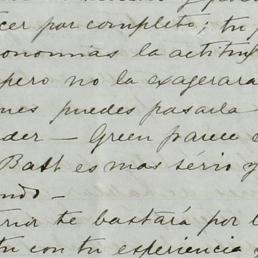 cer por completo; tu
onomias la actitud
pero no la exagerara
nes puedes pasarla
der — Green parece
Batt es mas sério y
ndo —
te bastará por l
tu con tu experiencia y